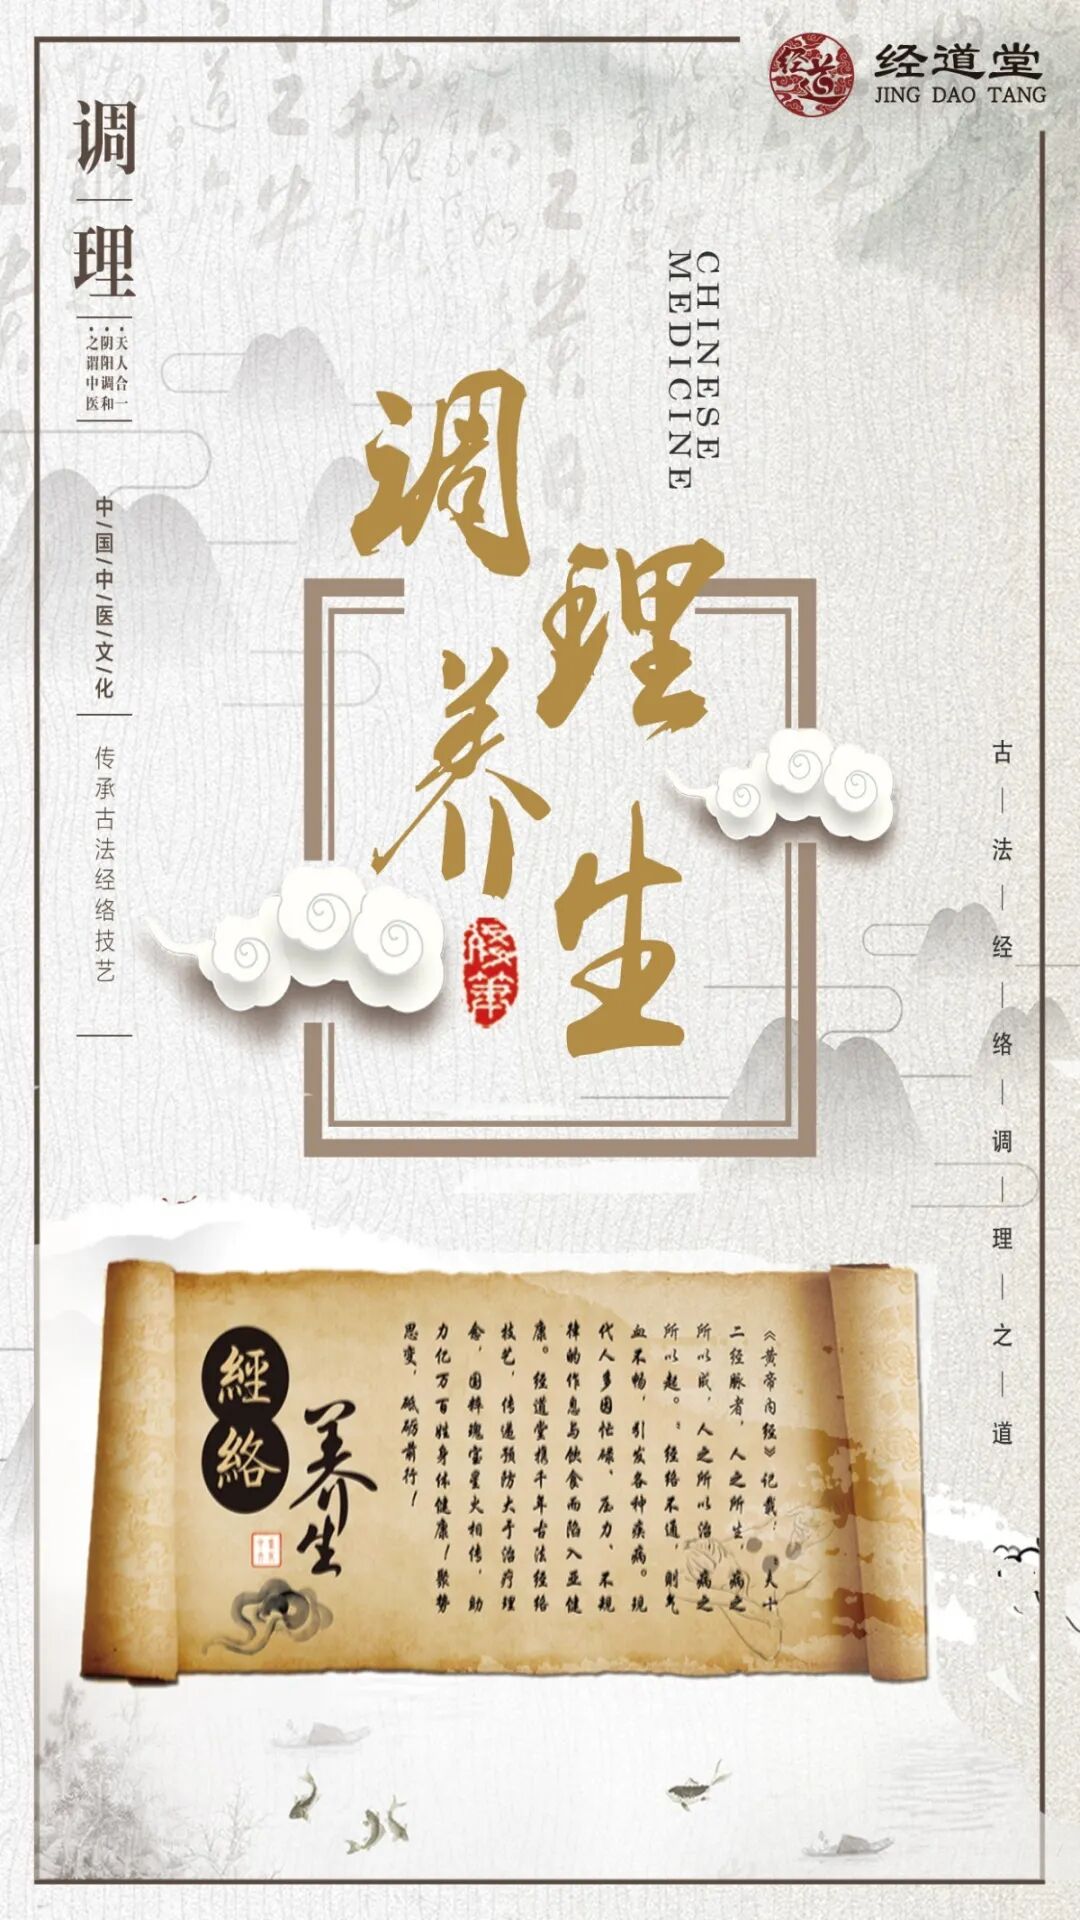 经道堂
JING DAO TANG
调理
天人合一
阴阳调和
之谓中医
中/国/中/医/文/化
传承古法经络技艺
CHINESE
MEDICINE
调理
养生
古|法|经|络|调|理|之|道
《黄帝内经》记载:“夫十
二经脉者,人之所生,病之
所以成,人之所以治,病之
所以起。”经络不通,则气
血不畅,引发各种疾病。现
代人多因忙碌、压力、不规
律的作息与饮食而陷入亚健
康。经道堂携千年古法经络
技艺,传递预防大于治疗理
念,国粹瑰宝星火相传,助
力亿万百姓身体健康!聚势
思变,砥砺前行!
經絡
养生